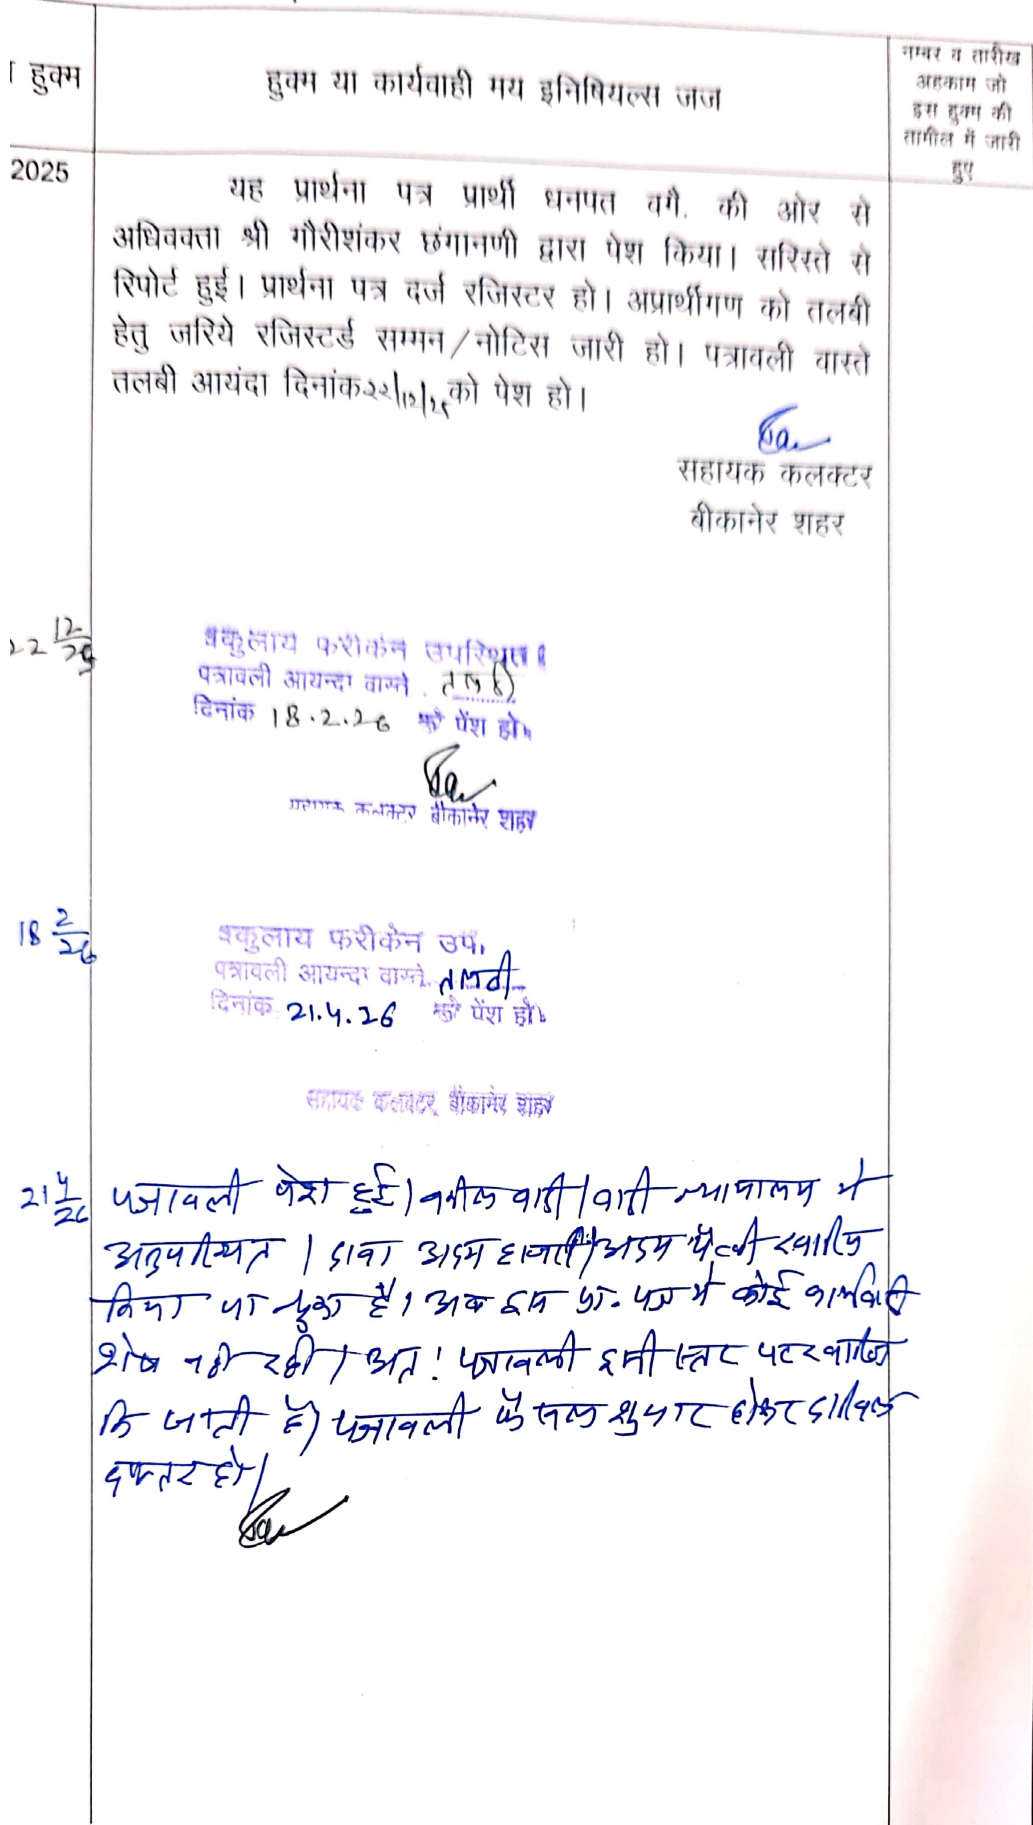 हुक्म
हुक्म या कार्यवाही मय इनिषियल्स जज
नम्बर व तारीख
अहकाम जो
इस हुक्म की
तामील में जारी
हुए
2025
यह प्रार्थना पत्र प्रार्थी धनपत वगै. की ओर से
अधिवक्ता श्री गौरीशंकर छंगानणी द्वारा पेश किया। सरिस्ते से
रिपोर्ट हुई। प्रार्थना पत्र दर्ज रजिस्टर हो। अप्रार्थीगण को तलबी
हेतु जरिये रजिस्टर्ड सम्मन/नोटिस जारी हो। पत्रावली वास्ते
तलबी आयंदा दिनांक २२/१२/२५ को पेश हो।
सहायक कलक्टर
बीकानेर शहर
22 12/25
वकुलाय फरीकेन उपस्थित।
पत्रावली आयन्दा वास्ते तलबी
दिनांक 18.2.26 को पेंश हो।
सहायक कलक्टर बीकानेर शहर
18 2/26
वकुलाय फरीकेन उप.
पत्रावली आयन्दा वास्ते तलवी
दिनांक 21.4.26 को पेंश हो।
सहायक कलक्टर, बीकानेर शहर
21 4/26
पत्रावली पेश हुई। वकील वादी/वादी न्यायालय मे
अनुपस्थित। दावा अदम हाजरी/अदम पैरवी खारिज
किया जा चुका है। अब इस प्रा. पत्र मे कोई कार्यवाही
शेष नही रही। अतः पत्रावली इसी स्तर पर खारिज
कि जाती है। पत्रावली फैसल शुमार होकर दाखिल
दफ्तर हो।